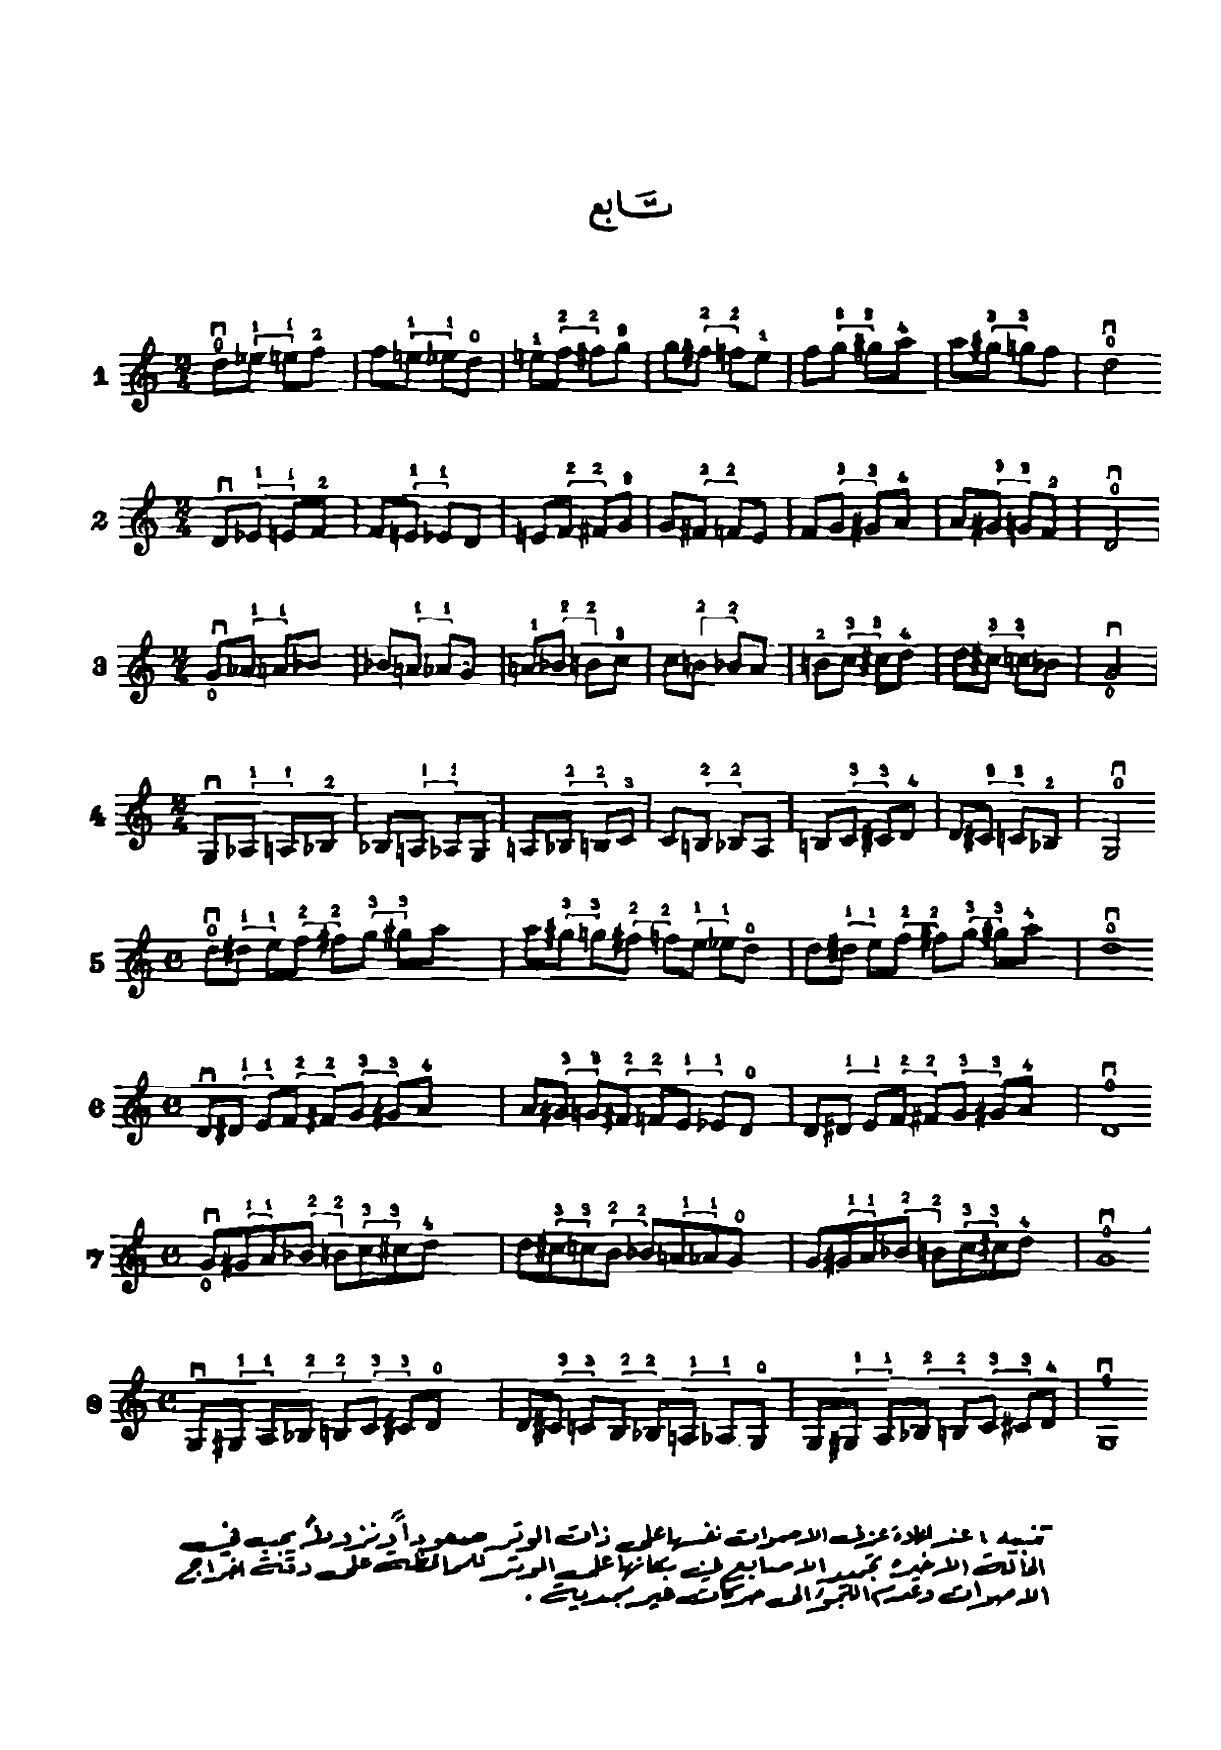 تابع
1
2
3
4
5
6
7
8
تنبيه : عند اعادة عزف الاصوات نفسها على ذات الوتر صعوداً ونزولاً يجب في
الحالة الاخيرة تجميد الاصابع في مكانها على الوتر للمحافظة على دقة اخراج
الاصوات وعدم اللجوء الى حركات غير مجدية .